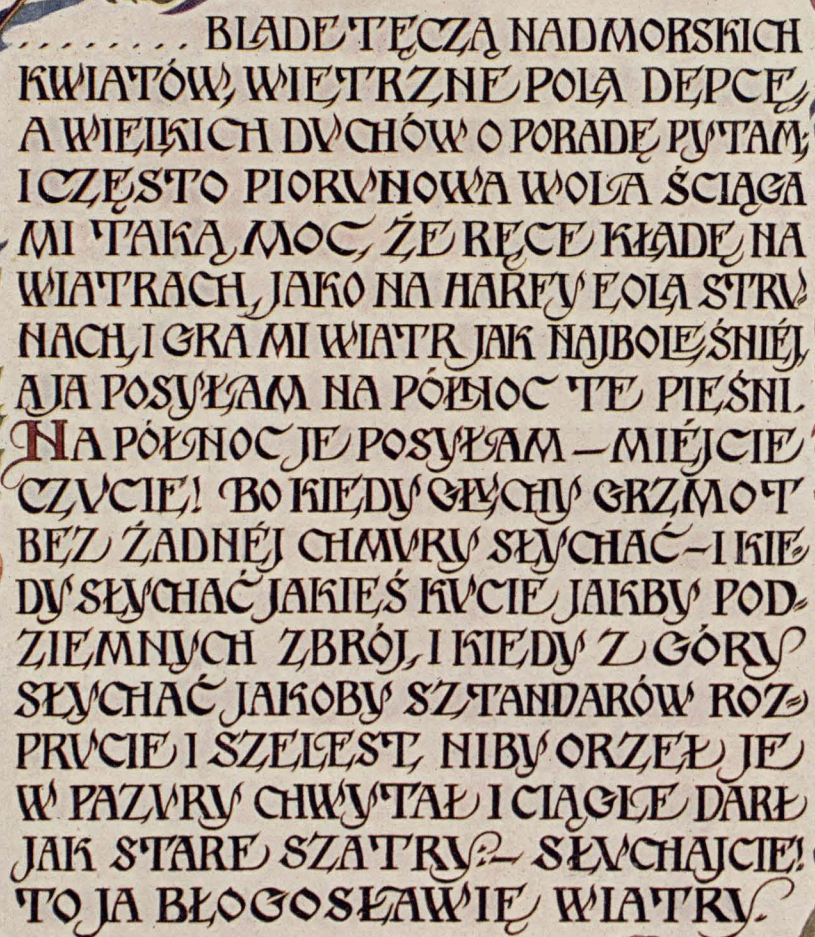 ........ BLADE TĘCZĄ NADMORSKICH
KWIATÓW, WIETRZNE POLA DEPCĘ,
A WIELKICH DVCHÓW O PORADĘ PYTAM;
I CZĘSTO PIORVNOWA WOLA ŚCIĄGA
MI TAKĄ MOC, ŻE RĘCE KŁADĘ NA
WIATRACH, JAKO NA HARFY EOLA STRV-
NACH, I GRA MI WIATR JAK NAJBOLEŚNIÉJ,
A JA POSYŁAM NA PÓŁNOC TE PIEŚNI.
NA PÓŁNOC JE POSYŁAM — MIÉJCIE
CZVCIE! BO KIEDY GŁVCHY GRZMOT
BEZ ŻADNÉJ CHMVRY SŁYCHAĆ – I KIE-
DY SŁYCHAĆ JAKIEŚ KVCIE JAKBY POD-
ZIEMNYCH ZBRÓJ, I KIEDY Z GÓRY
SŁYCHAĆ JAKOBY SZTANDARÓW ROZ-
PRVCIE I SZELEST, NIBY ORZEŁ JE
W PAZVRY CHWYTAŁ I CIĄGLE DARŁ
JAK STARE SZATRY?– SŁVCHAJCIE!
TO JA BŁOGOSŁAWIĘ WIATRY.